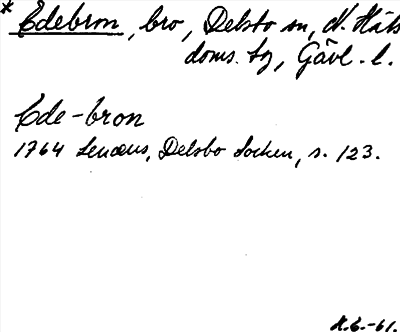 * Edebron, bro, Delsbo sn, N. Häls
doms. tg, Gävl. l.
Ede-bron
1764 Lenæus, Delsbo Socken, s. 123.
H.E.-61.